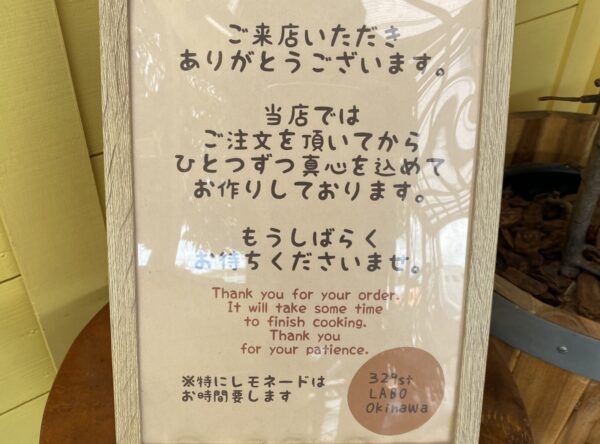 ご来店いただき
ありがとうございます。
当店では
ご注文を頂いてから
ひとつずつ真心を込めて
お作りしております。
もうしばらく
お待ちくださいませ。
Thank you for your order.
It will take some time
to finish cooking.
Thank you
for your patience.
※特にレモネードは
お時間要します
329st
LABO
Okinawa